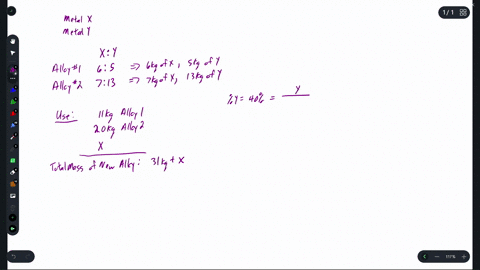 Metal X
Metal Y
X : Y
Alloy #1 6 : 5 => 6kg of X, 5kg of Y
Alloy #2 7 : 13 => 7kg of X, 13kg of Y
%Y = 40% = Y
Use: 11kg Alloy 1
20kg Alloy 2
X
Total Mass of New Alloy: 31kg + X
1 / 1